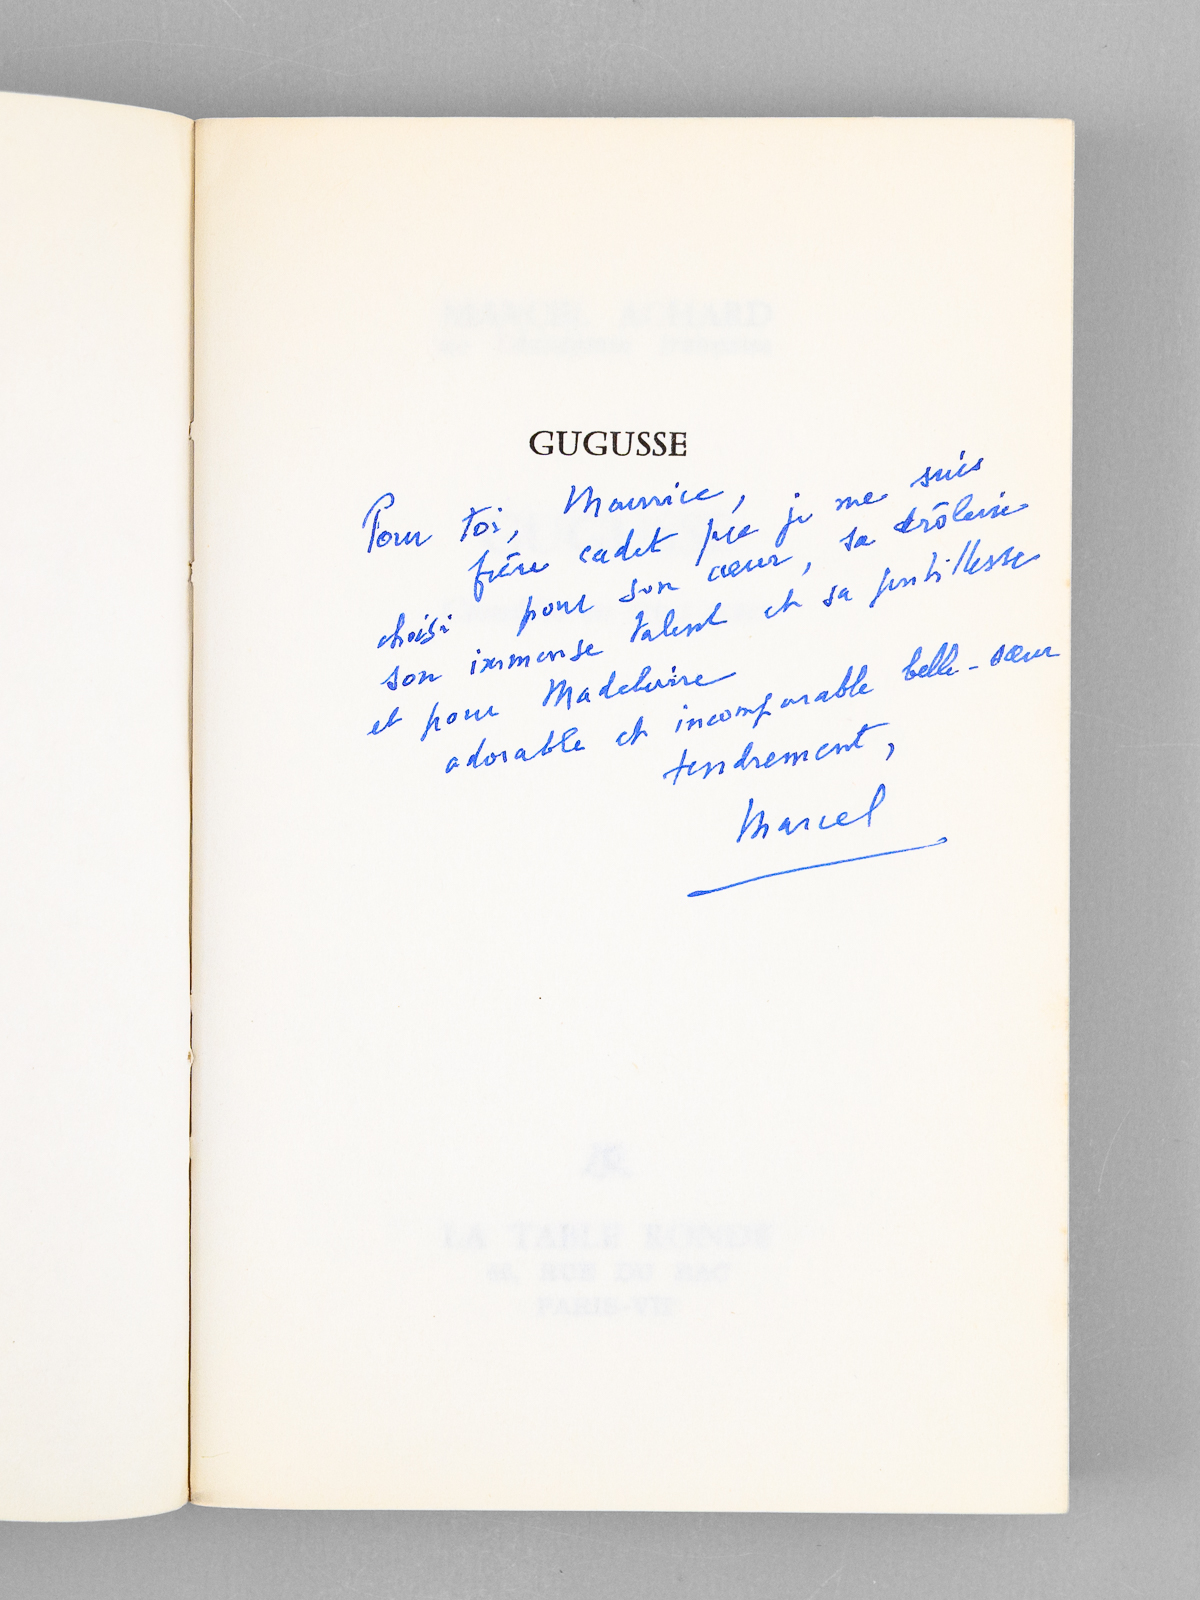 MARCEL ACHARD
de l'Académie française
GUGUSSE
Pour toi, Maurice,
frère cadet que je me suis
choisi pour son cœur, sa drôlerie
son immense talent et sa gentillesse
et pour Madeleine
adorable et incomparable belle-sœur
tendrement,
Marcel
LA TABLE RONDE
RUE DU BAC
PARIS-VIIe